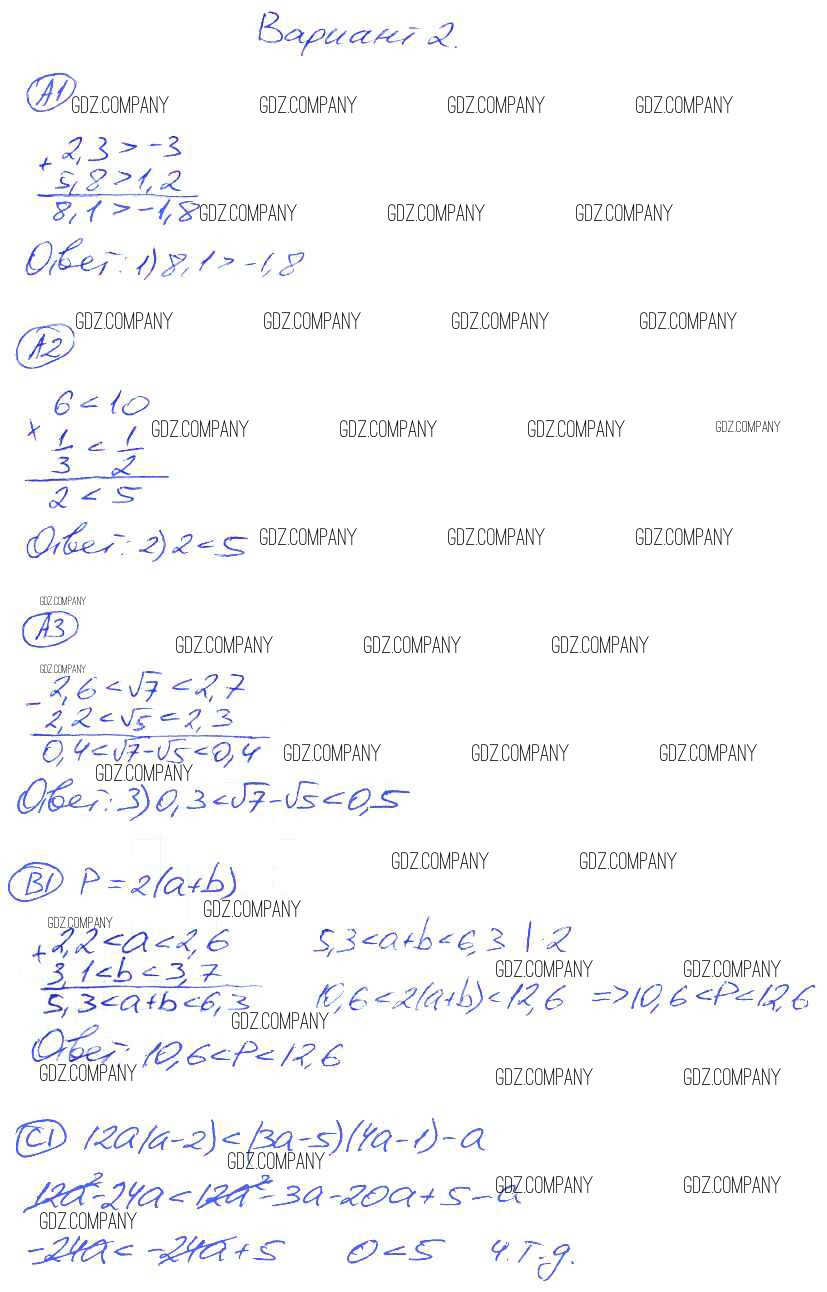 Вариант 2.
А1
GDZ.COMPANY GDZ.COMPANY GDZ.COMPANY GDZ.COMPANY
+ 2,3 > -3
5,8 > 1,2
8,1 > -1,8
GDZ.COMPANY GDZ.COMPANY GDZ.COMPANY
Ответ: 1) 8,1 > -1,8
GDZ.COMPANY GDZ.COMPANY GDZ.COMPANY GDZ.COMPANY
А2
6 < 10
GDZ.COMPANY GDZ.COMPANY GDZ.COMPANY GDZ.COMPANY
× 1/3 < 1/2
2 < 5
Ответ: 2) 2 < 5
GDZ.COMPANY GDZ.COMPANY GDZ.COMPANY
GDZ.COMPANY
А3
GDZ.COMPANY GDZ.COMPANY GDZ.COMPANY
GDZ.COMPANY
- 2,6 < √7 < 2,7
2,2 < √5 < 2,3
0,4 < √7 - √5 < 0,4
GDZ.COMPANY GDZ.COMPANY GDZ.COMPANY
GDZ.COMPANY
Ответ: 3) 0,3 < √7 - √5 < 0,5
GDZ.COMPANY GDZ.COMPANY
В1 P = 2(a+b)
GDZ.COMPANY
GDZ.COMPANY
+ 2,2 < a < 2,6 5,3 < a+b < 6,3 | ·2
3,1 < b < 3,7
GDZ.COMPANY GDZ.COMPANY
5,3 < a+b < 6,3 10,6 < 2(a+b) < 12,6 => 10,6 < P < 12,6
GDZ.COMPANY
Ответ: 10,6 < P < 12,6
GDZ.COMPANY GDZ.COMPANY GDZ.COMPANY
С1 12a(a-2) < (3a-5)(4a-1) - a
GDZ.COMPANY
12a² - 24a < 12a² - 3a - 20a + 5 - a
GDZ.COMPANY GDZ.COMPANY
GDZ.COMPANY
-24a < -24a + 5 0 < 5 ч.т.д.